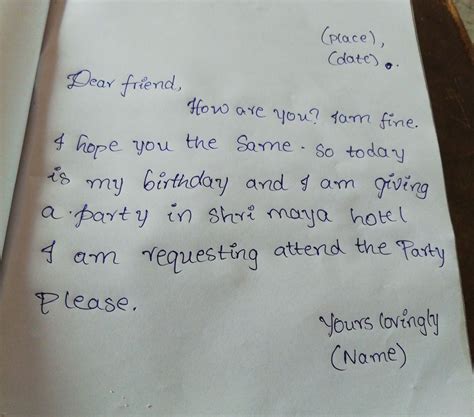 (place),
(date).
Dear friend,
How are you? Iam fine.
I hope you the same. So today
is my birthday and I am giving
a party in shri maya hotel
I am requesting attend the Party
Please.
Yours lovingly
(Name)